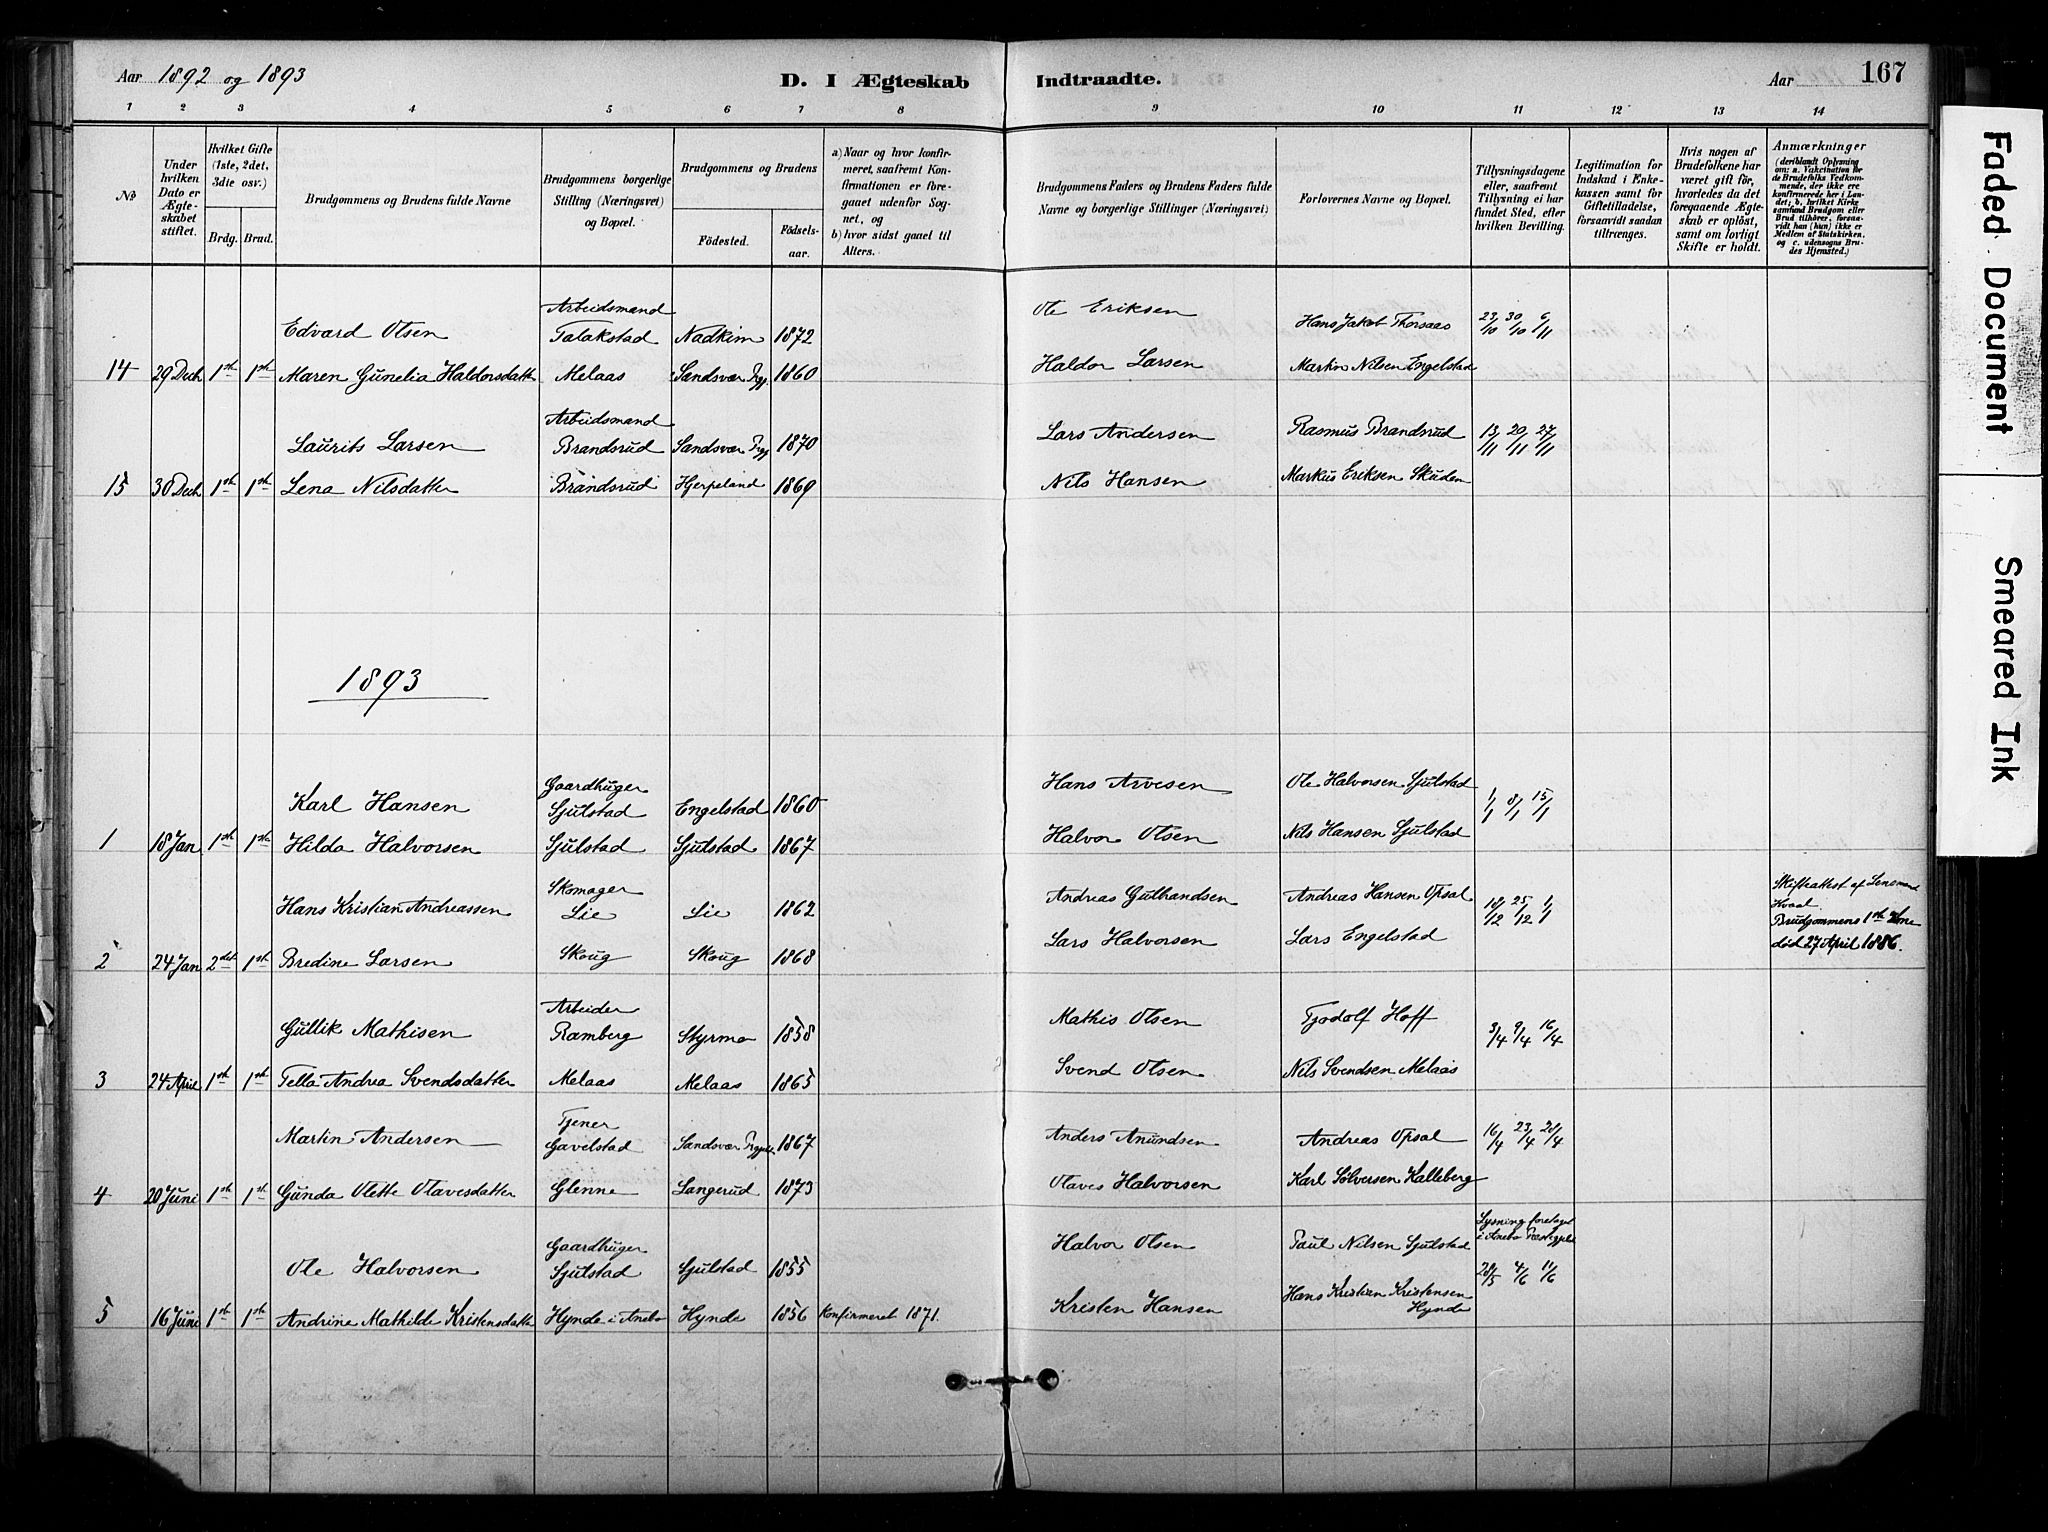 Aar 1892 og 1893
D. I Ægteskab Indtraadte.
Aar
167
1 2 3 4 5 6 7 8 9 10 11 12 13 14
No
Under hvilken Dato er Ægteskabet stiftet.
Hvilket Gifte (1ste, 2det, 3die osv.)
Brdg. Brud.
Brudgommens og Brudens fulde Navne
Brudgommens borgerlige Stilling (Næringsvei) og Bopæl.
Brudgommens og Brudens
Födested.
Födselsaar.
a) Naar og hvor konfirmeret, saafremt Konfirmationen er foregaaet udenfor Sognet, og
b) hvor sidst gaaet til Alters.
Brudgommens Faders og Brudens Faders fulde Navne og borgerlige Stillinger (Næringsvei)
Forlovernes Navne og Bopæl.
Tillysningsdagene eller, saafremt Tillysning ei har fundet Sted, efter hvilken Bevilling.
Legitimation for Indskud i Enkekassen samt for Giftetilladelse, forsaavidt saadan tiltrænges.
Hvis nogen af Brudefolkene har været gift för, hvorledes da det foregaaende Ægteskab er oplöst, samt om lovligt Skifte er holdt.
Anmærkninger
(deriblandt Oplysning om: a. Vakcination for de Brudefolks Vedkommende, der ikke ere konfirmerede her i Landet; b. hvilket Kirkesamfund Brudgom eller Brud tilhörer, forsaavidt han (hun) ikke er Medlem af Statskirken, og c. udensogns Brudes Hjemsted.)
Arbeidsmand
Edvard Olsen Talakstad Nadkim 1872 Ole Eriksen Hans Jakob Thorsaas 23/10 30/10 6/11
14 29 Decb 1ste 1ste Maren Gunelia Haldorsdatter Melaas Sandsvær Prgj. 1860 Haldor Larsen Martin Nilsen Engelstad
Arbeidsmand
Laurits Larsen Brandsrud Sandsvær Prgj. 1870 Lars Andersen Rasmus Brandsrud 13/11 20/11 27/11
15 30 Decb 1ste 1ste Lena Nilsdatter Brandsrud Hjerpeland 1869 Nils Hansen Markus Eriksen Skuden
1893
Gaardbruger
Karl Hansen Sjulstad Engelstad 1860 Hans Arvesen Ole Halvorsen Sjulstad 1/1 8/1 15/1
1 18 Jan 1ste 1ste Hilda Halvorsen Sjulstad Sjulstad 1867 Halvor Olsen Nils Hansen Sjulstad
Skomager
Hans Kristian Andreassen Lie Lie 1862 Andreas Gulbrandsen Andreas Hansen Opsal 18/12 25/12 1/1
Skifteattest af Lensmand Kvaal.
Brudgommens 1ste Kone
død 27 April 1886.
2 24 Jan 2det 1ste Bredine Larsen Skoug Skoug 1868 Lars Halvorsen Lars Engelstad
Arbeider
Gullik Mathisen Ramberg Styrmo 1858 Mathis Olsen Tjodolf Hoff 3/4 9/4 16/4
3 24 April 1ste 1ste Tella Andrea Svendsdatter Melaas Melaas 1865 Svend Olsen Nils Svendsen Melaas
Tjener
Martin Andersen Gavelstad Sandsvær Prgjeld 1867 Anders Anundsen Andreas Opsal 16/4 23/4 28/4
4 20 Juni 1ste 1ste Gunda Olette Olavesdatter Glenne Langerud 1873 Olaves Halvorsen Karl Sølversen Kalleberg
Gaardbruger
Ole Halvorsen Sjulstad Sjulstad 1855 Halvor Olsen Paul Nilsen Sjulstad
Lysning foretaget
i Anebo Præstegjeld
28/5 4/6 11/6
5 16 Juni 1ste 1ste Andrine Mathilde Kristensdatter Hynde i Anebo Hynde 1856 Konfirmeret 1871. Kristen Hansen Hans Kristian Kristensen Hynde
Faded Document
Smeared Ink